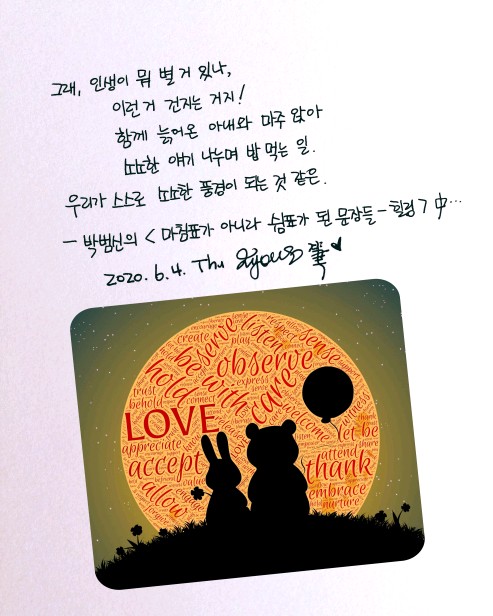 그래, 인생이 뭐 별거 있나,
이런 거 건지는 거지!
함께 늙어온 아내와 마주 앉아
소소한 얘기 나누며 밥 먹는 일.
우리가 스스로 소소한 풍경이 되는 것 같은.
- 박범신의 < 마침표가 아니라 쉼표가 된 문장들 - 힐링 > 中…
2020. 6. 4. Thu 筆
create
serve
listen
respect
sense
be with
observe
express
serve
hold
care
trust
behold
connect
LOVE
welcome
witness
let be
share
appreciate
accept
attend
thank
value
engage
allow
embrace
nurture